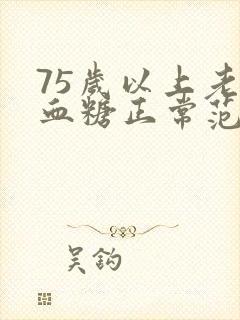 75岁以上老
血糖正常范
吴钩